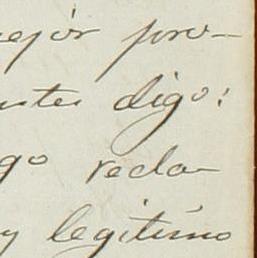 ejor pro-
ntes digo:
go recla
y legitimo